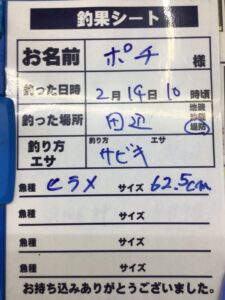 釣果シート
お名前 ポチ 様
釣った日時 2月19日10時頃
釣った場所 田辺 地磯 沖磯 堤防
釣り方 エサ 釣り方 サビキ エサ
魚種 ヒラメ サイズ 62.5cm
魚種 サイズ
魚種 サイズ
魚種 サイズ
お持ち込みありがとうございました。